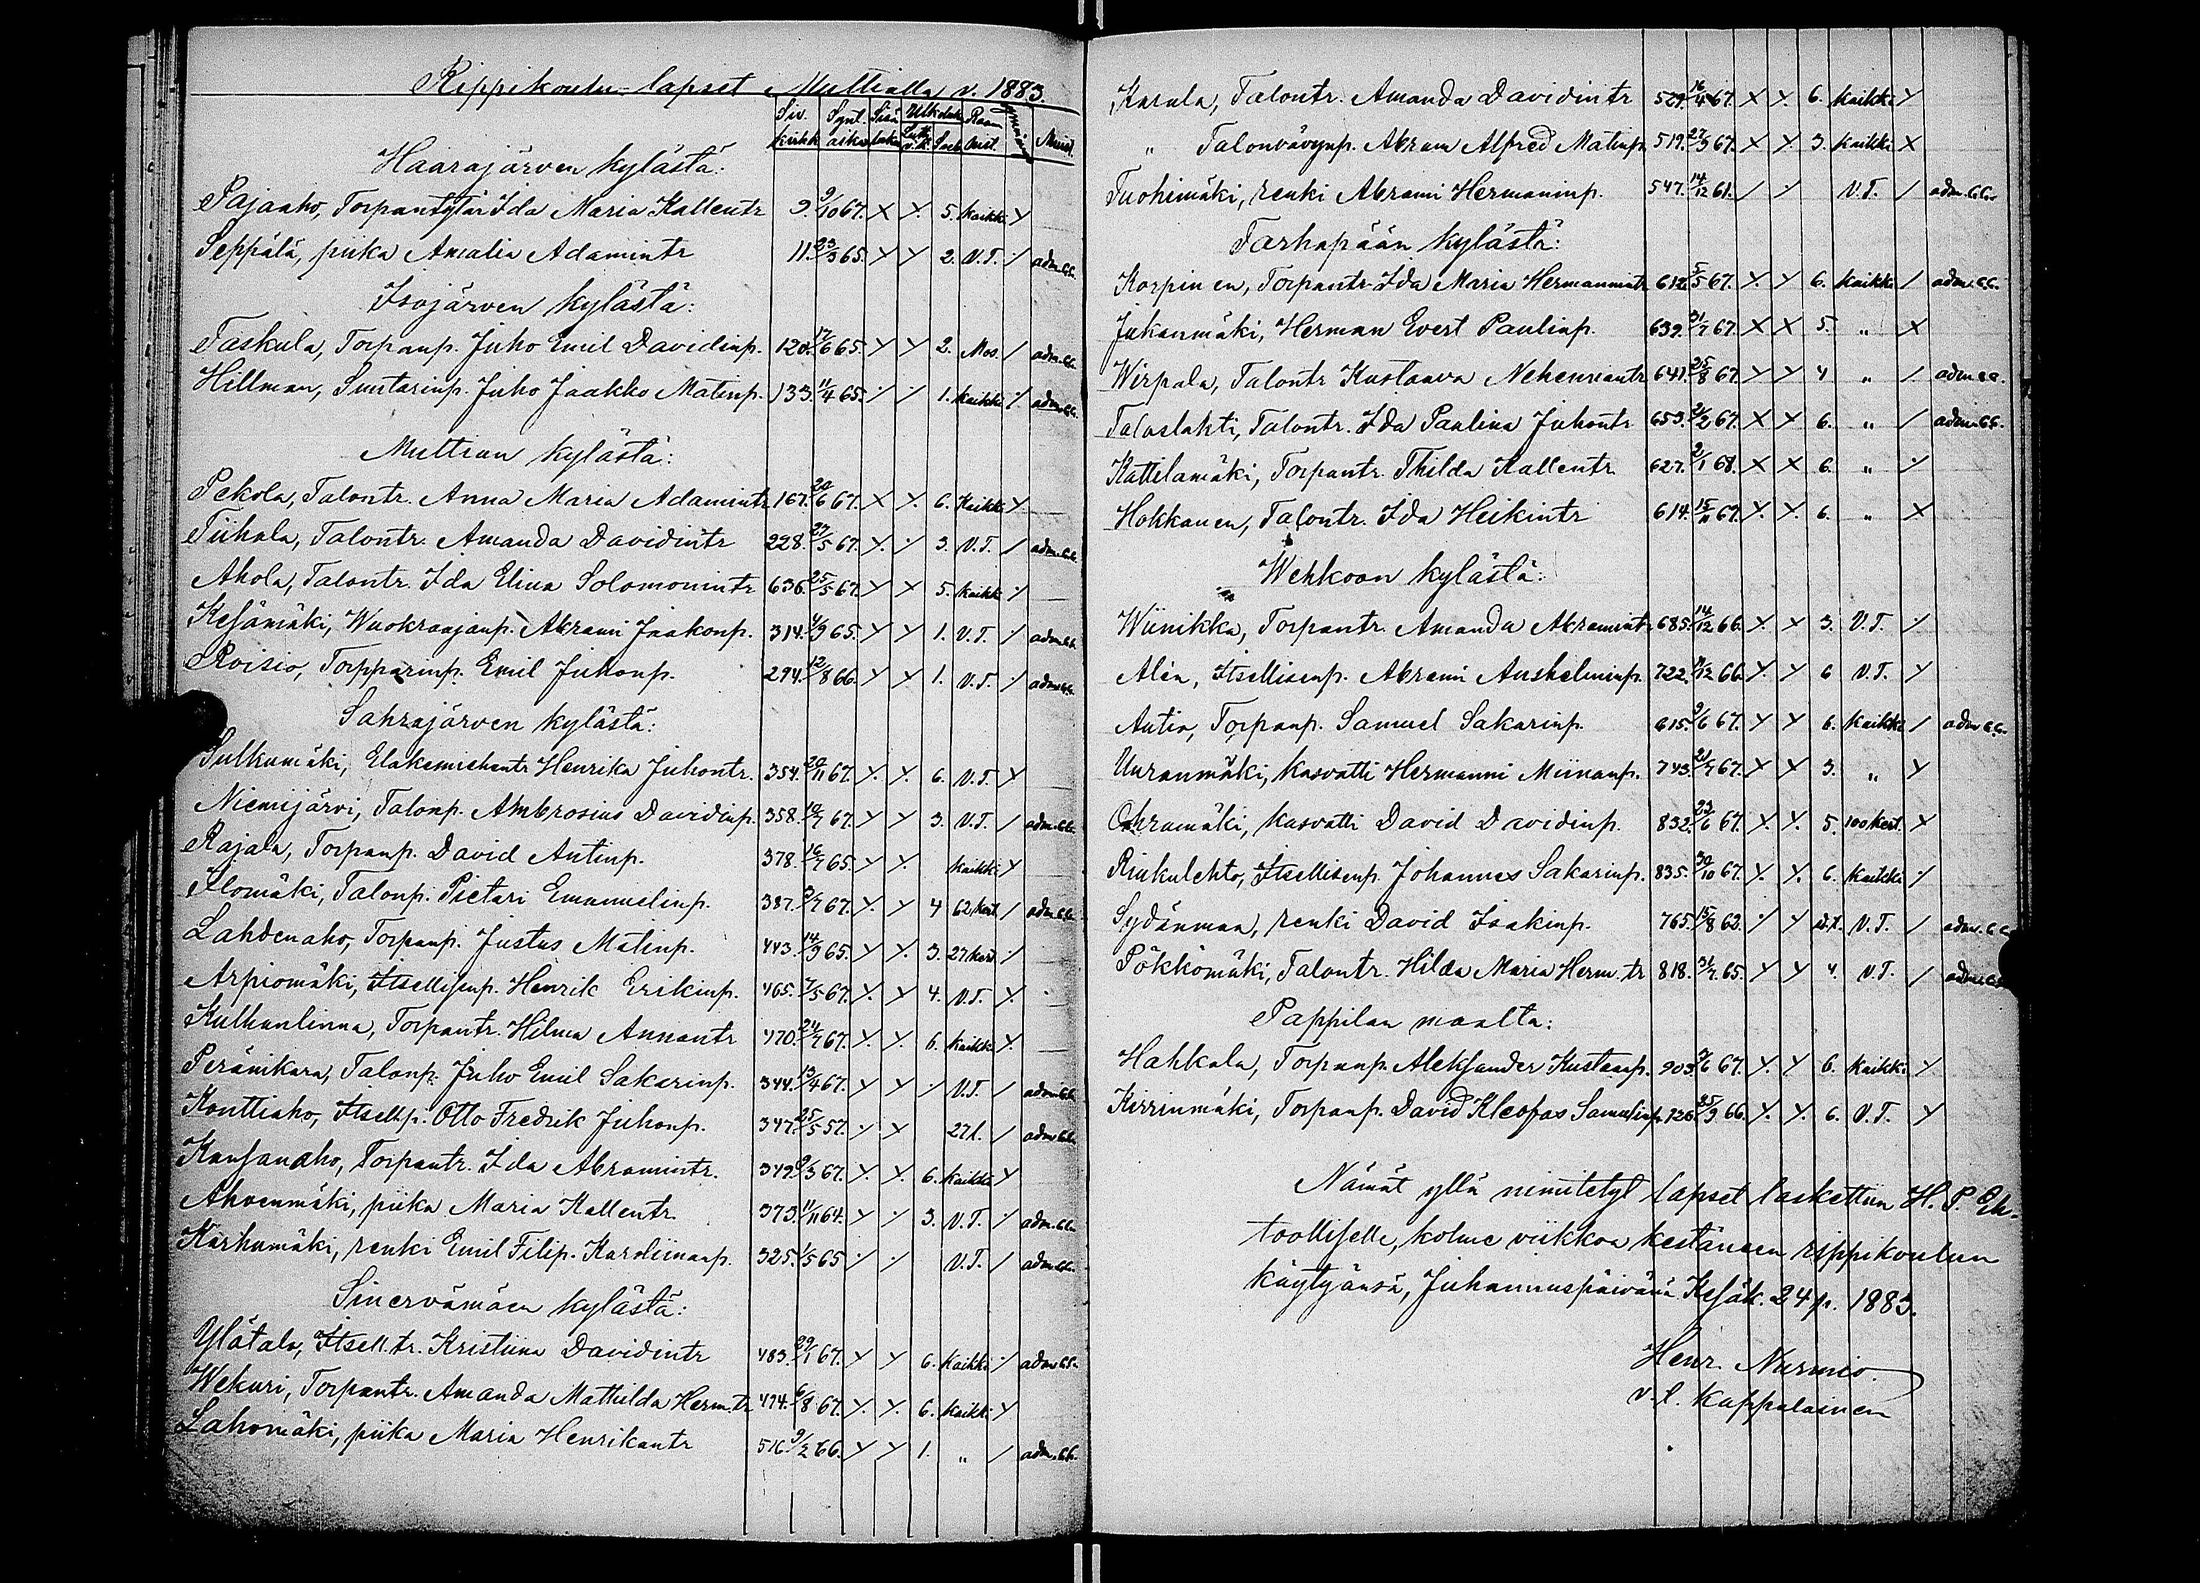 Rippikoulu-lapset Multialla v. 1883.
Siv. kirkk. Synt. aika Sisä luku Ulkoluku Luth. v.k. Sveb. Raam. hist. Muist.
Haarajärven kylästä:
Pajaaho, Torpantytär Ida Maria Kallentr 9. 9/10 67. X Y. 5. Kaikki Y
Seppälä, piika Amalia Adamintr 11. 23/3 65. Y Y 2. V.T. / adm.c.c.
Isojärven kylästä:
Taskula, Torpanp. Juho Emil Davidinp. 120. 17/6 65. Y Y 2. Mos. / adm.c.c.
Hillman, Suutarinp. Juho Jaakko Matinp. 133. 11/4 65. / / 1. Kaikki / adm.c.c.
Multian kylästä:
Pekola, Talontr. Anna Maria Adamintr 167. 20/6 67. X Y. 6. Kaikki Y.
Tiihala, Talontr. Amanda Davidintr 228. 27/5 67. Y. / 3. V.T. / adm.c.c.
Ahola, Talontr. Ida Elina Solomonintr 636. 25/5 67. Y Y 5. Kaikk. /
Kesämäki, Wuokraajanp. Abrami Jaakonp. 314. 4/9 65. Y Y 1. V.T. / adm.c.c.
Roisio, Torpparinp. Emil Juhonp. 294. 12/8 66. Y Y 1. V.T. / adm.c.c.
Sahrajärven kylästä:
Sulkumäki, Eläkemiehentr Henrika Juhontr. 354. 20/11 67. Y. Y. 6. V.T. Y
Niemijärvi, Talonp. Ambrosius Davidinp. 358. 10/7 67. Y Y 3. V.T. / adm.c.c.
Rajala, Torpanp. David Antinp. 378. 16/7 65. Y Y. Kaikki Y
Ilomäki, Talonp. Pietari Emanuelinp. 387. 9/7 67. Y. Y 4 62 kert. / adm.c.c.
Lahdenaho, Torpanp. Justus Matinp. 443. 14/9 65. Y Y. 3. 27 kert. /
Arpiomäki, Itsellisenp. Henrik Erikinp. 465. 7/5 67. Y. Y 4. V.T. Y.
Kulhanlinna, Torpantr. Hilma Annantr 470. 24/7 67. Y. Y. 6. Kaikk. Y.
Peränikara, Talonp. Juho Emil Sakarinp. 344. 13/4 67. Y Y / V.T. / adm.c.c.
Konttiaho, Itsellp. Otto Fredrik Juhonp. 347. 25/5 57. / Y 27 l. / adm.c.c.
Kansanaho, Torpantr. Ida Abramintr. 349. 9/3 67. Y. Y. 6. Kaikki Y
Ahvenmäki, piika Maria Kallentr. 373. 11/11 64. Y / 3. V.T. / adm.c.c.
Karhumäki, renki Emil Filip. Karoliinanp. 325. 1/5 65 / / V.T. / adm.c.c.
Sinervämäen kylästä:
Ylätalo, Itsell.tr. Kristiina Davidintr 483. 29/1 67. Y Y 6. Kaikki / adm.c.c.
Wekuri, Torpantr. Amanda Mathilda Herm.tr. 474. 6/8 67. Y. Y. 6. Kaikki Y
Lahomäki, piika Maria Henrikantr 516. 9/2 66. Y Y 1. „ / adm.c.c.
Karula, Talontr. Amanda Davidintr 529. 16/4 67. X Y. 6. Kaikki Y
„ Talonvävynp. Abram Alfred Matinp. 519. 27/9 67. X X 3. Kaikki X
Tuohimäki, renki Abrami Hermaninp. 547. 14/12 61. / / V.T. / adm.c.c.
Tarhapään kylästä:
Korpinen, Torpantr. Ida Maria Hermannintr 612. 5/5 67. Y. Y 6. Kaikki / adm.c.c.
Jukanmäki, Herman Evert Paulinp. 639. 31/7 67. X X 5. „ X
Wirpala, Talontr Kustaava Nehemiantr 641. 25/8 67. Y Y 4 „ / adm.c.c.
Talaslahti, Talontr. Ida Paulina Juhontr 653. 21/2 67. X X 6. „ / adm.c.c.
Kattilamäki, Torpantr. Thilda Kallentr 627. 2/1 68. X X 6. „ /
Hokkanen, Talontr. Ida Heikintr 614. 15/11 67. Y. Y. 6. „ X
Wehkoon kylästä:
Wiinikka, Torpantr. Amanda Abramintr 685. 14/12 66. Y. Y 3. V.T. /
Alén, Itsellisenp. Abrami Anshelminp. 722. 11/12 66. Y. Y 6 V.T. Y
Autio, Torpanp. Samuel Sakarinp. 615. 9/6 67. Y. Y 6. Kaikki / adm.c.c.
Uuranmäki, kasvatti Hermanni Miinanp. 743. 21/7 67. X Y 3. „ Y
Ohramäki, kasvatti David Davidinp. 832. 23/6 67. Y. Y. 5. 100 kert. X
Rinkulehto, Itsellisenp. Johannes Sakarinp. 835. 30/10 67. Y. Y. 6. Kaikki /
Sydänmaa, renki David Isakinp. 765. 15/8 62. / Y V.T. / adm.c.c.
Pökkömäki, Talontr. Hilda Maria Herm.tr 818. 31/7 65. Y Y 4. V.T. / adm.c.c.
Pappilan maalta:
Hahkala, Torpanp. Aleksander Kustaanp. 903. 9/6 67. Y. Y 6. Kaikki Y
Kirrinmäki, Torpanp. David Kleofas Samulinp. 726. 25/9 66. Y. Y. 6. V.T. Y
Nämät yllä nimitetyt lapset laskettiin H. P. Eh-
toolliselle, kolme viikkoa kestäneen rippikoulun
käytyänsä, Juhannuspäivänä Kesäk. 24 p. 1883.
Henr. Nurmio.
v.t. Kappalainen